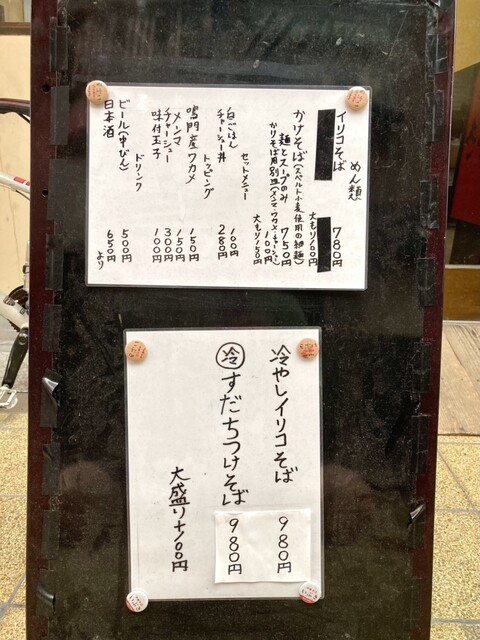 めん類
イリコそば 780円
大もり100円
かけそば(スペルト小麦使用の細麺)
麺とスープのみ 750円
かけそば用別皿(メンマ・ワカメ・チャーシュー) 100円
大もり150円
セットメニュー
白ごはん 100円
チャーシュー丼 280円
トッピング
鳴門産ワカメ 150円
メンマ 150円
チャーシュー 300円
味付玉子 100円
ドリンク
ビール(中びん) 500円
日本酒 650円より
冷やしイリコそば 980円
冷 すだちつけそば 980円
大盛り+100円